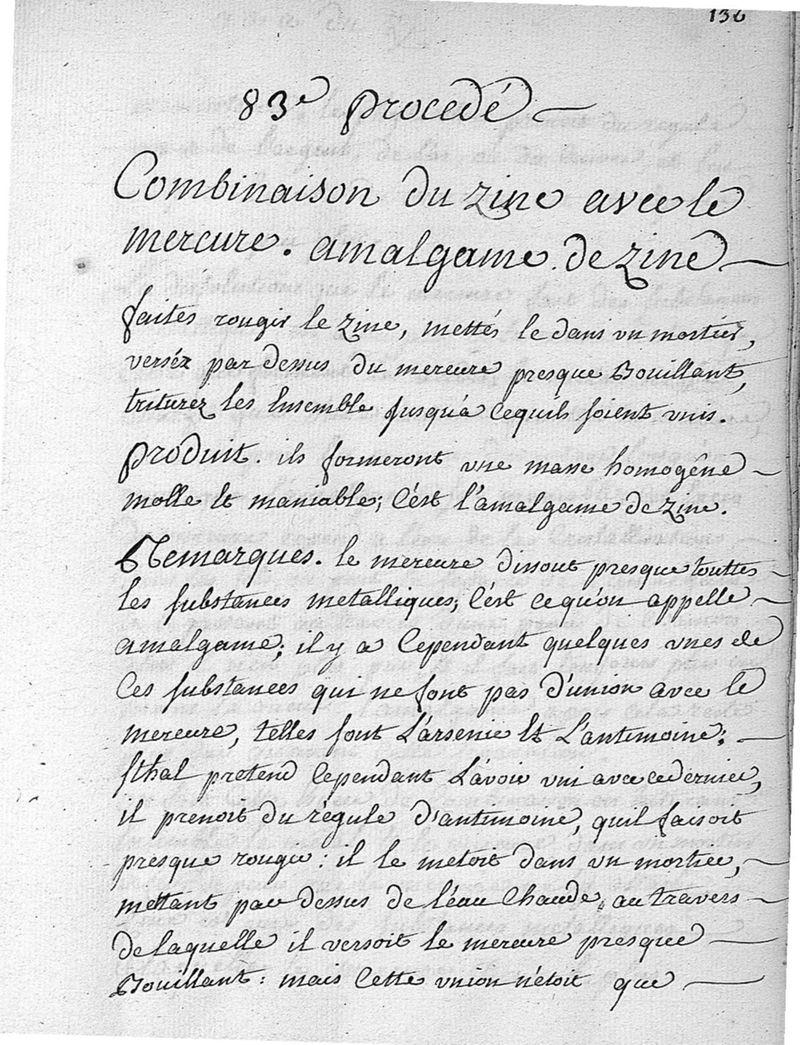 136
83e procedé
Combinaison du zinc avec le
mercure. amalgame de zinc
faites rougir le zinc, mettés le dans un mortier,
verséz par dessus du mercure presque Bouillant,
triturez les Ensemble jusqu'a cequils soient unis.
produit. ils formeront une masse homogêne
molle et maniable; C'est l'amalgame de zinc.
Remarques. le mercure dissout presque touttes
les substances metalliques; C'est cequ'on appelle
amalgame; il y a Cependant quelques unes de
Ces substances qui ne font pas d'union avec le
mercure, telles sont L'arsenic et L'antimoine;
sthal pretend Cependant L'avoir uni avec ce dernier,
il prenoit du régule d'antimoine, quil faisoit
presque rougir: il le metoit dans un mortier,
mettant par dessus de l'éau Chaude, au travers
de laquelle il versoit le mercure presque
Bouillant: mais Cette union n'étoit que